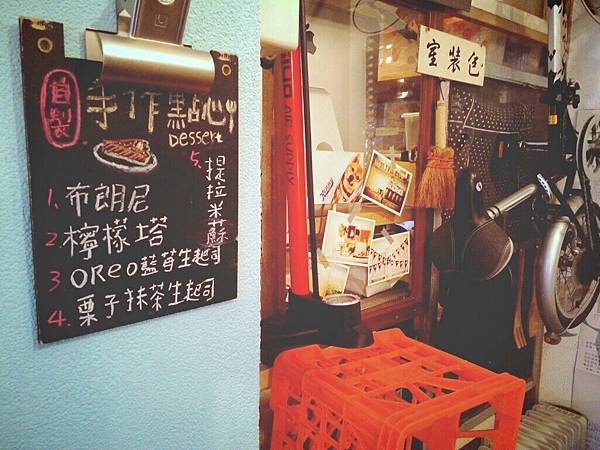 自製
手作點心
Dessert
1. 布朗尼
2. 檸檬塔
3 OREO藍莓生起司
4. 栗子抹茶生起司
5. 提拉米蘇
室裝包
AIR SUPPLY